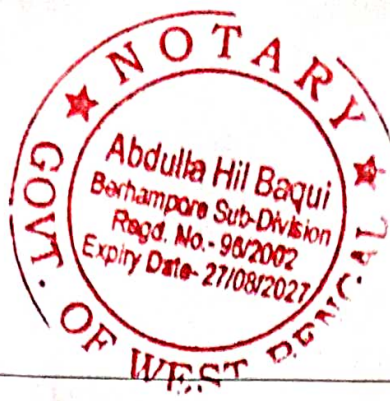 ★ NOTARY ★
GOVT. OF WEST BENGAL
Abdulla Hil Baqui
Berhampore Sub-Division
Regd. No.- 96/2002
Expiry Date- 27/08/2027